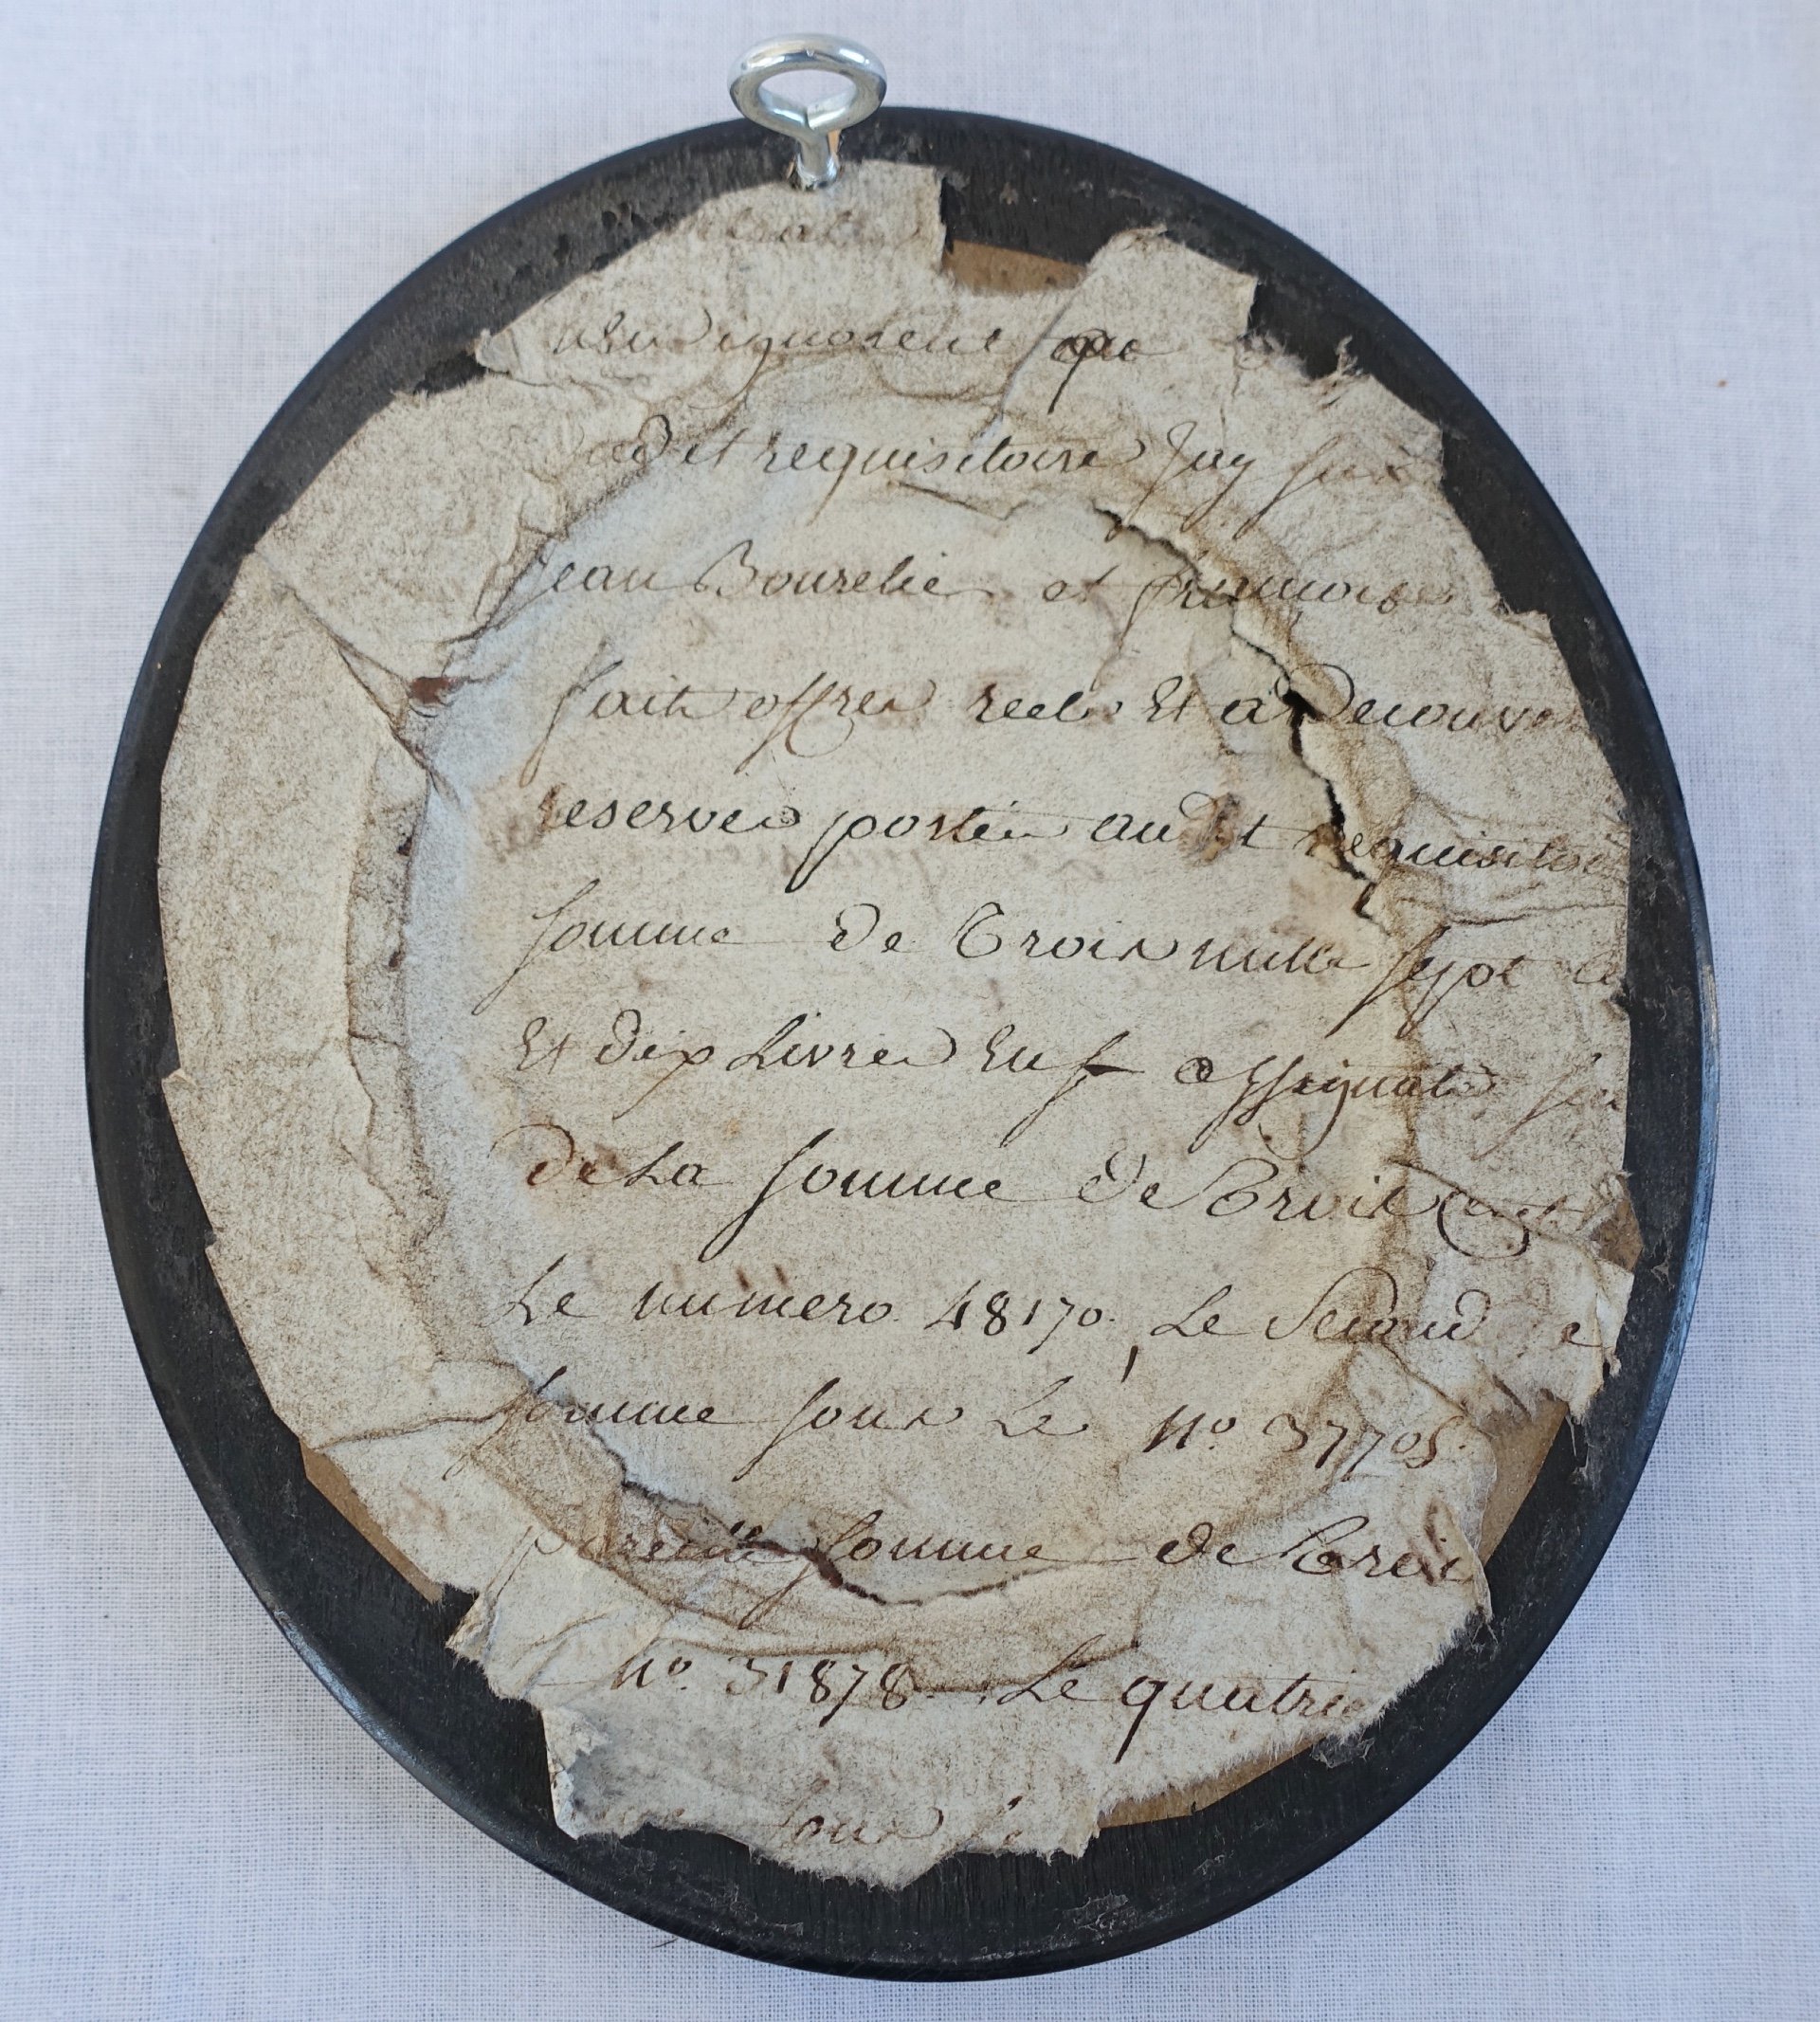 n'en ignorent que
audit requisitoire Jay
Jean Bourelie et
fait offres reel Et a Decouve
reserves portées audit requisitoi
somme de Trois mille sept ce
Et dix Livres En assignats
de La somme de Trois cent
Le numero 48170. Le Second de
somme sous Le No 37705.
pareille somme de Troi
No 31878. Le quatrie
sous le